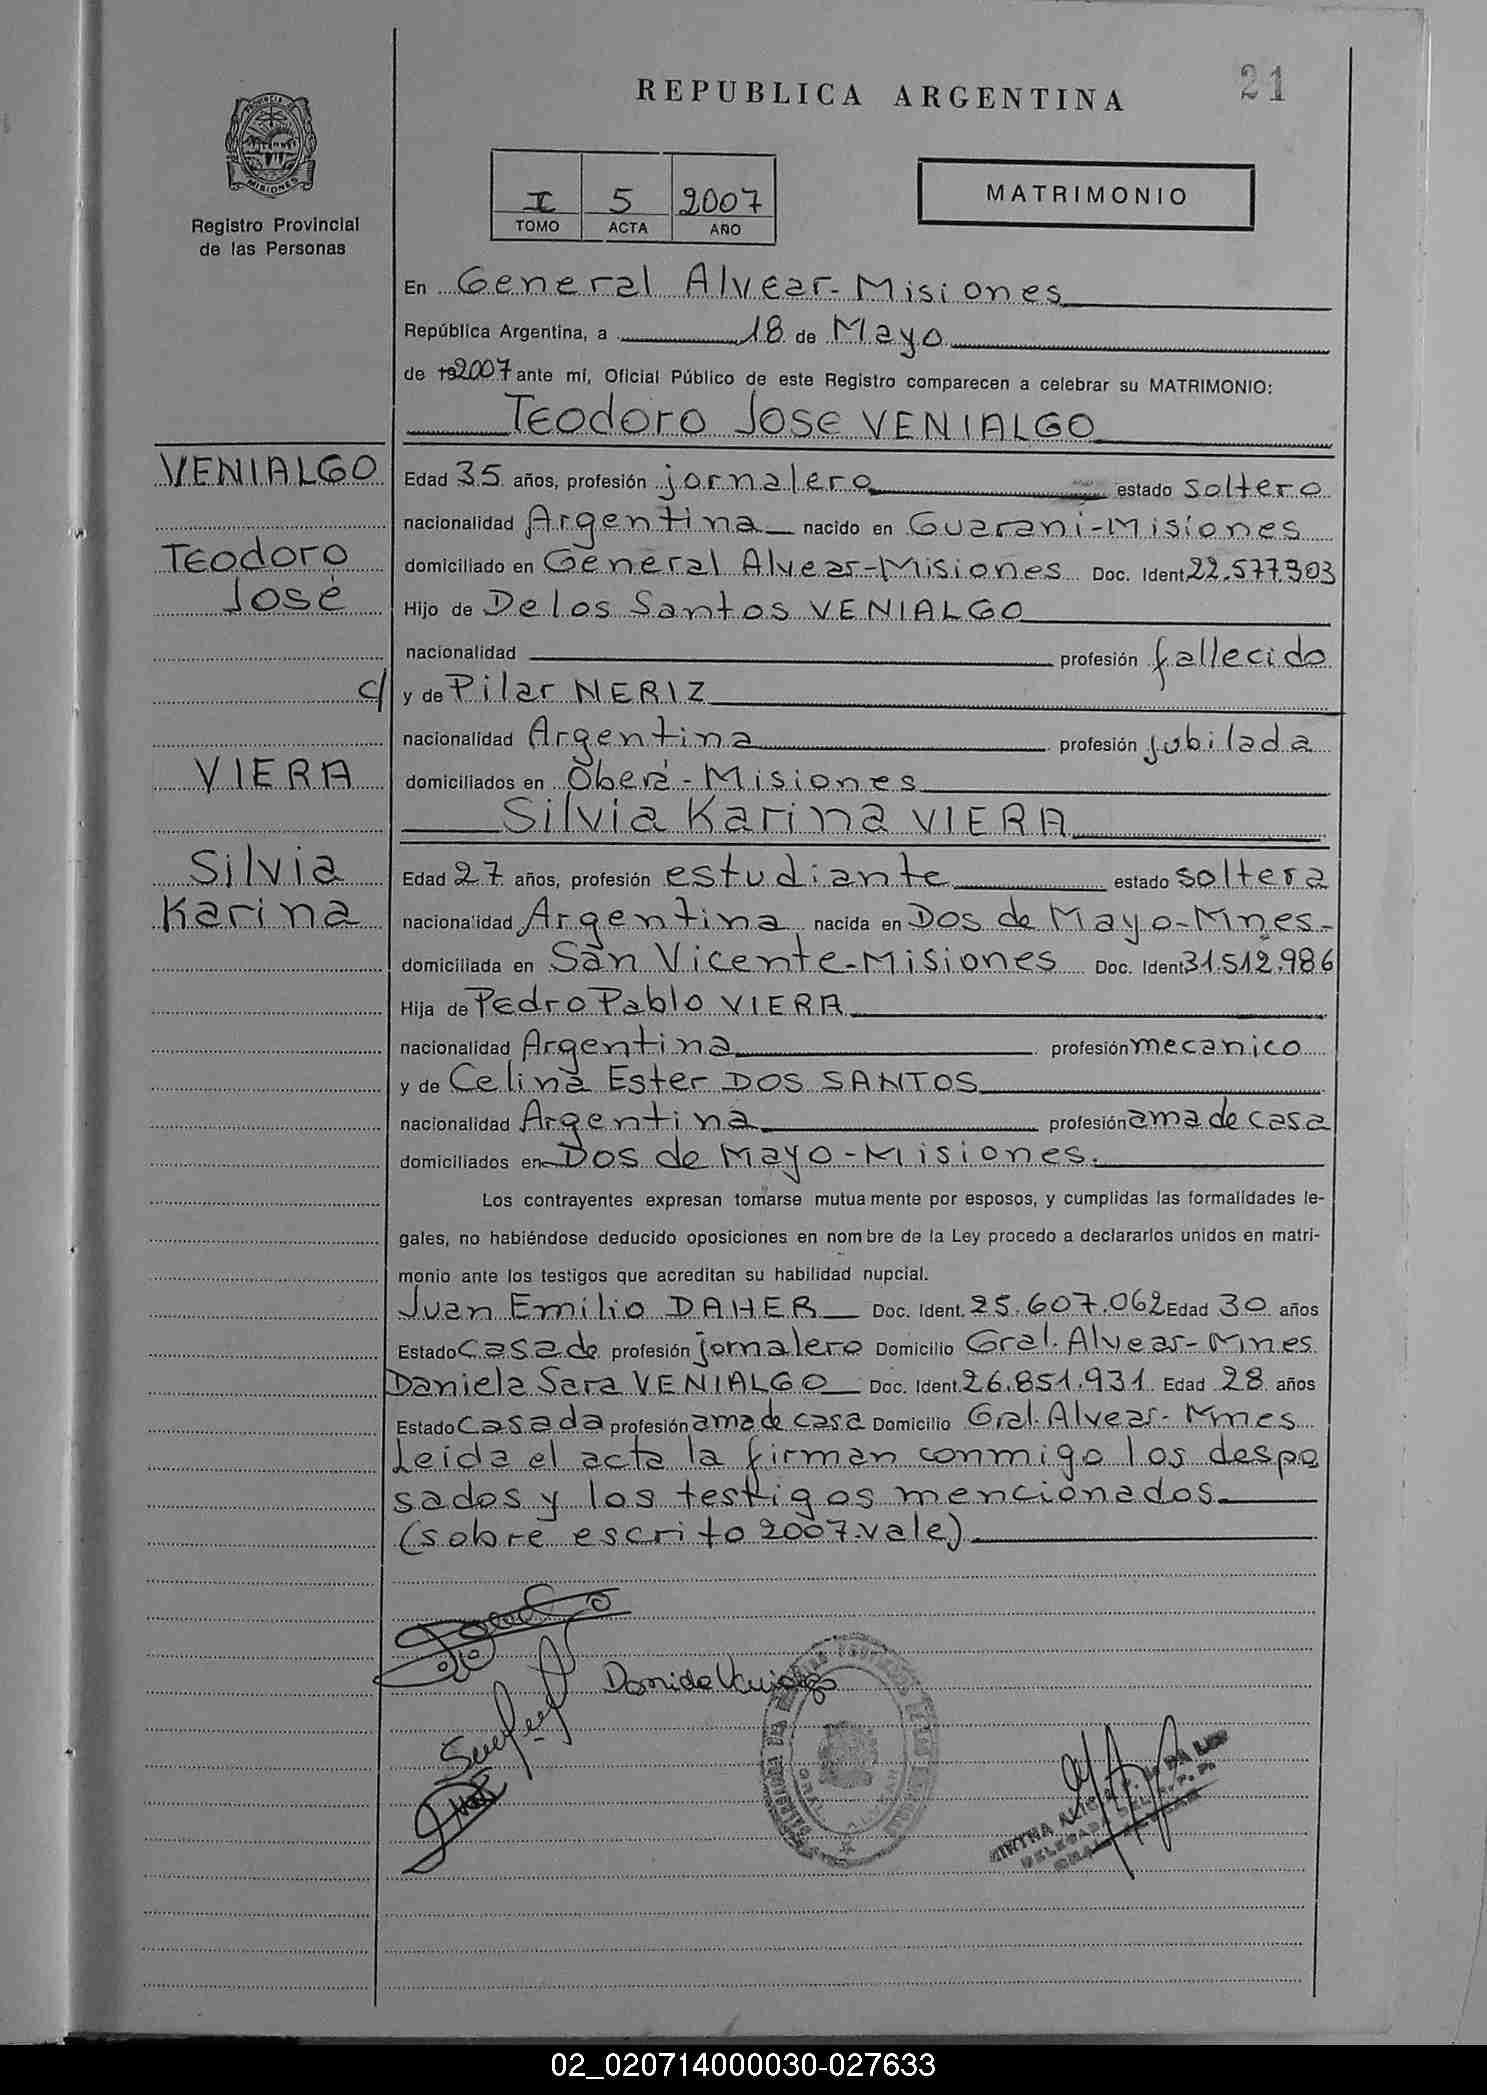 21
REPUBLICA ARGENTINA
PROVINCIA DE MISIONES
Registro Provincial
de las Personas
I 5 2007
TOMO ACTA AÑO
MATRIMONIO
En General Alvear-Misiones
República Argentina, a 18 de Mayo
de 192007 ante mí, Oficial Público de este Registro comparecen a celebrar su MATRIMONIO:
Teodoro Jose VENIALGO
VENIALGO
Teodoro
José
c/
VIERA
Silvia
Karina
Edad 35 años, profesión jornalero estado soltero
nacionalidad Argentina nacido en Guarani-Misiones
domiciliado en General Alvear-Misiones Doc. Ident 22.577.303
Hijo de De los Santos VENIALGO
nacionalidad profesión fallecido
y de Pilar NERIZ
nacionalidad Argentina profesión jubilada
domiciliados en Oberá-Misiones
Silvia Karina VIERA
Edad 27 años, profesión estudiante estado soltera
nacionalidad Argentina nacida en Dos de Mayo-Mnes-
domiciliada en San Vicente-Misiones Doc. Ident 31.512.986
Hija de Pedro Pablo VIERA
nacionalidad Argentina profesión mecanico
y de Celina Ester DOS SANTOS
nacionalidad Argentina profesión ama de casa
domiciliados en Dos de Mayo-Misiones.
Los contrayentes expresan tomarse mutuamente por esposos, y cumplidas las formalidades le-
gales, no habiéndose deducido oposiciones en nombre de la Ley procedo a declararlos unidos en matri-
monio ante los testigos que acreditan su habilidad nupcial.
Juan Emilio DAHER Doc. Ident. 25.607.062 Edad 30 años
Estado casado profesión jornalero Domicilio Gral. Alvear-Mnes
Daniela Sara VENIALGO Doc. Ident. 26.851.931 Edad 28 años
Estado casada profesión ama de casa Domicilio Gral. Alvear-Mnes
Leída el acta la firman conmigo los despo
sados y los testigos mencionados.
(sobre escrito 2007.vale)
Daniela Venialgo
MIRTHA ALICIA
DELEGADA
02_020714000030-027633